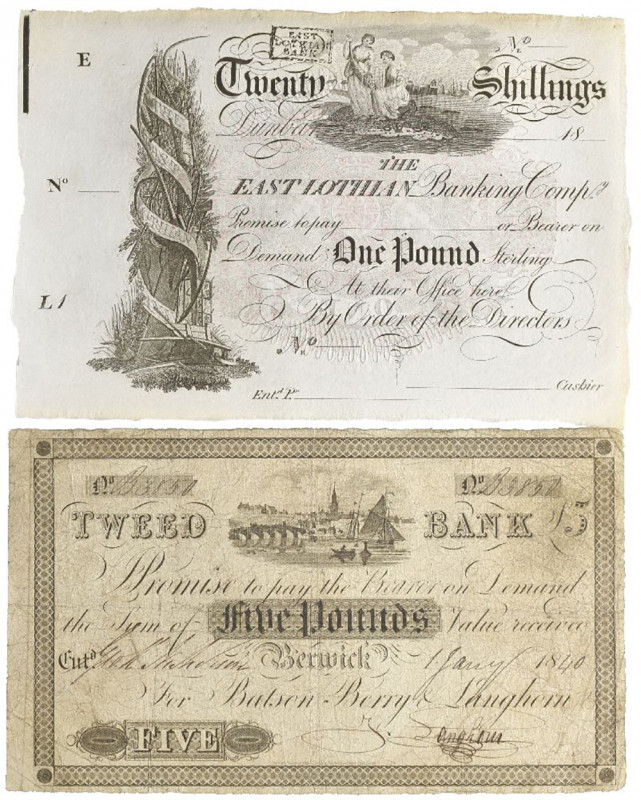 EAST
LOTHIAN
BANK
E
No
Twenty Shillings
Dunbar 18
THE
No
EAST LOTHIAN Banking Compy
Promise to pay or Bearer on
Demand One Pound Sterling
L1
At their Office here
By Order of the Directors
No
Entd. Pr. Cashier
No. B3851 No. B3851
TWEED BANK £5
I Promise to pay the Bearer on Demand
the Sum of Five Pounds Value received
Entd. Berwick 1 Jany 1840
For Batson Berry & Langhorn
FIVE
J. Langhorn